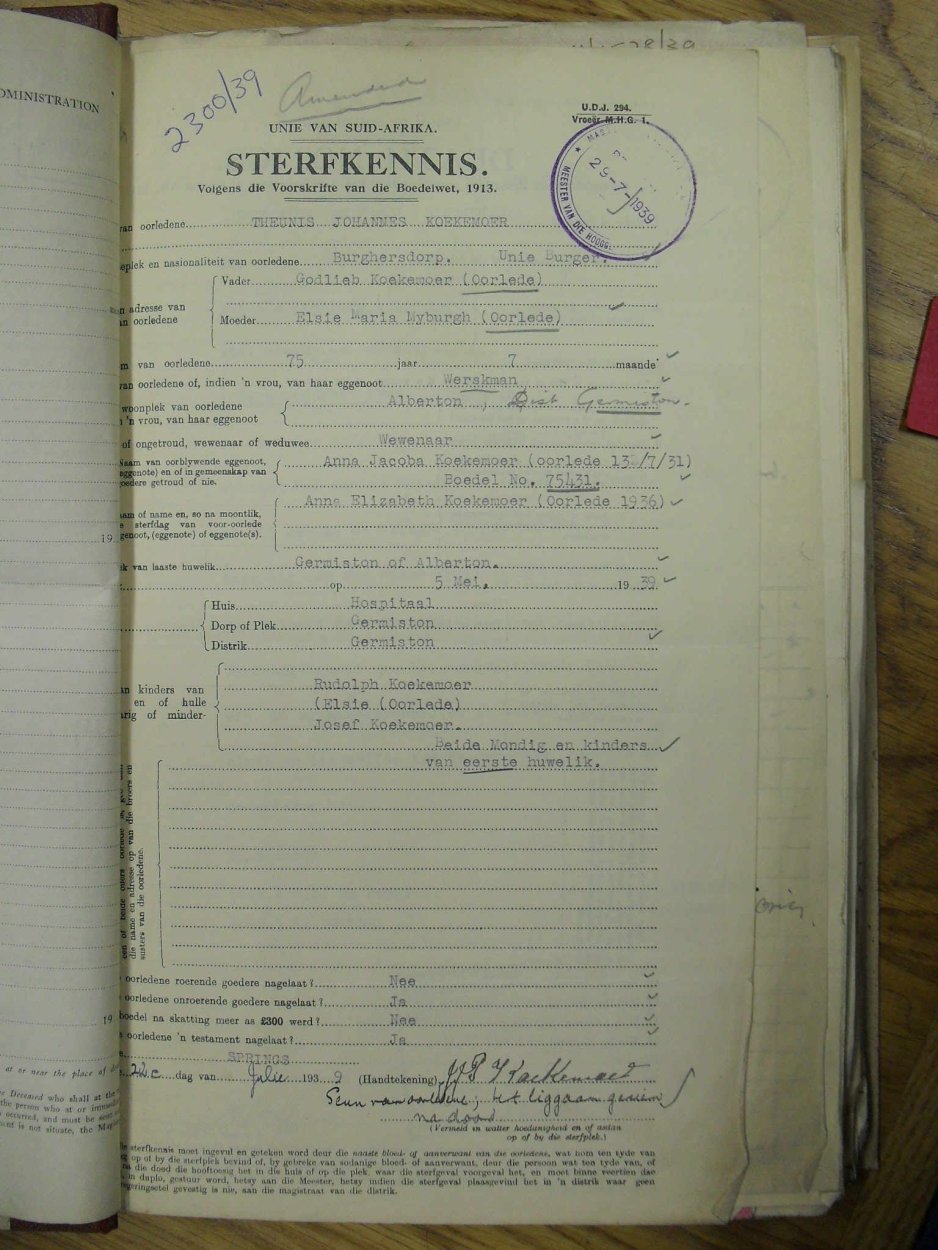 DMINISTRATION
2300/39
Amended
U.D.J. 294.
Vroeër M.H.G. 1.
UNIE VAN SUID-AFRIKA.
STERFKENNIS.
Volgens die Voorskrifte van die Boedelwet, 1913.
MEESTER VAN DIE HOOGG.
29-7-1939
van oorledene THEUNIS JOHANNES KOEKEMOER
eplek en nasionaliteit van oorledene Burghersdorp. Unie Burger.
Vader Godlieb Koekemoer (Oorlede)
n adresse van
n oorledene
Moeder Elsie Maria Myburgh (Oorlede)
m van oorledene 75 jaar 7 maande
van oorledene of, indien 'n vrou, van haar eggenoot Werskman
woonplek van oorledene
'n vrou, van haar eggenoot
Alberton, Dist Germiston.
of ongetroud, wewenaar of weduwee Wewenaar
Naam van oorblywende eggenoot,
eggenote) en of in gemeenskap van
oedere getroud of nie.
Anna Jacoba Koekemoer (oorlede 13/7/31)
Boedel No. 75431.
Anna Elizabeth Koekemoer (Oorlede 1936)
aam of name en, so na moontlik,
e sterfdag van voor-oorlede
genoot, (eggenote) of eggenote(s).
19
k van laaste huwelik Germiston of Alberton.
op 5 Mei, 1939
Huis Hospitaal
Dorp of Plek Germiston
Distrik Germiston
an kinders van
en of hulle
rig of minder-
Rudolph Koekemoer
(Elsie (Oorlede)
Josef Koekemoer.
Beide Mondig en kinders
van eerste huwelik.
die name en adresse op van die broers en
susters van die oorledene.
oorledene roerende goedere nagelaat? Nee
oorledene onroerende goedere nagelaat? Ja
boedel na skatting meer as £300 werd? Nee
19
oorledene 'n testament nagelaat? Ja
SPRINGS
22e dag van Julie 1939 (Handtekening) JJP Koekemoer
Seun van oorledene; het liggaam gesien
na dood
(Vermeld in watter hoedanigheid en of astan
op of by die sterfplek.)
at or near the place of
e Deceased who shall at the
the person who at or immedi
occurred, and must be sent
ent is not situate, the Mag
sterfkennis moet ingevul en geteken word deur die naaste bloed- of aanverwant van die oorledene, wat hom ten tyde van
op of by die sterfplek bevind of, by gebreke van sodanige bloed- of aanverwant, deur die persoon wat ten tyde van, of
na die dood die hooftoesig het in die huis of op die plek waar die sterfgeval voorgeval het, en moet binne veertien dae
in duplo, gestuur word, hetsy aan die Meester, hetsy indien die sterfgeval plaasgevind het in 'n distrik waar geen
geringsetel gevestig is nie, aan die magistraat van die distrik.